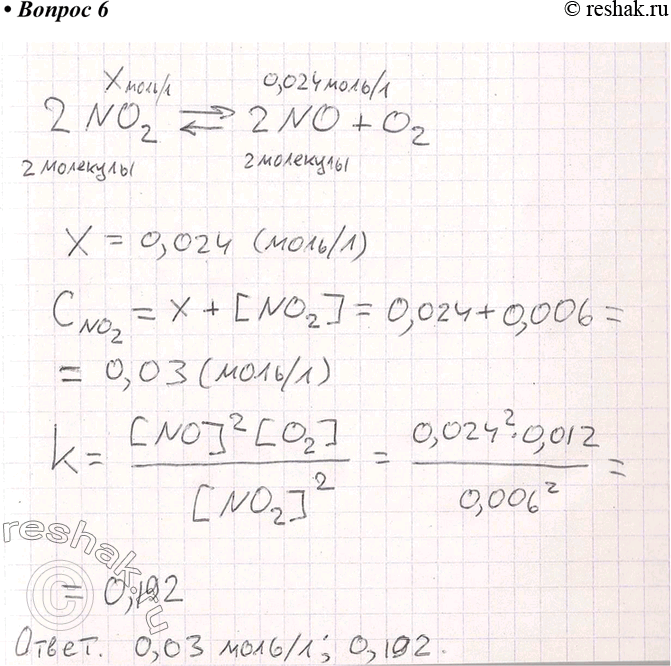 • Вопрос 6
© reshak.ru
X моль/л 0,024 моль/л
2 NO₂ ⇄ 2 NO + O₂
2 молекулы 2 молекулы
X = 0,024 (моль/л)
C_NO₂ = X + [NO₂] = 0,024 + 0,006 =
= 0,03 (моль/л)
k = [NO]² [O₂] / [NO₂]² = 0,024² · 0,012 / 0,006² =
= 0,192
reshak.ru
©
Ответ. 0,03 моль/л; 0,192.